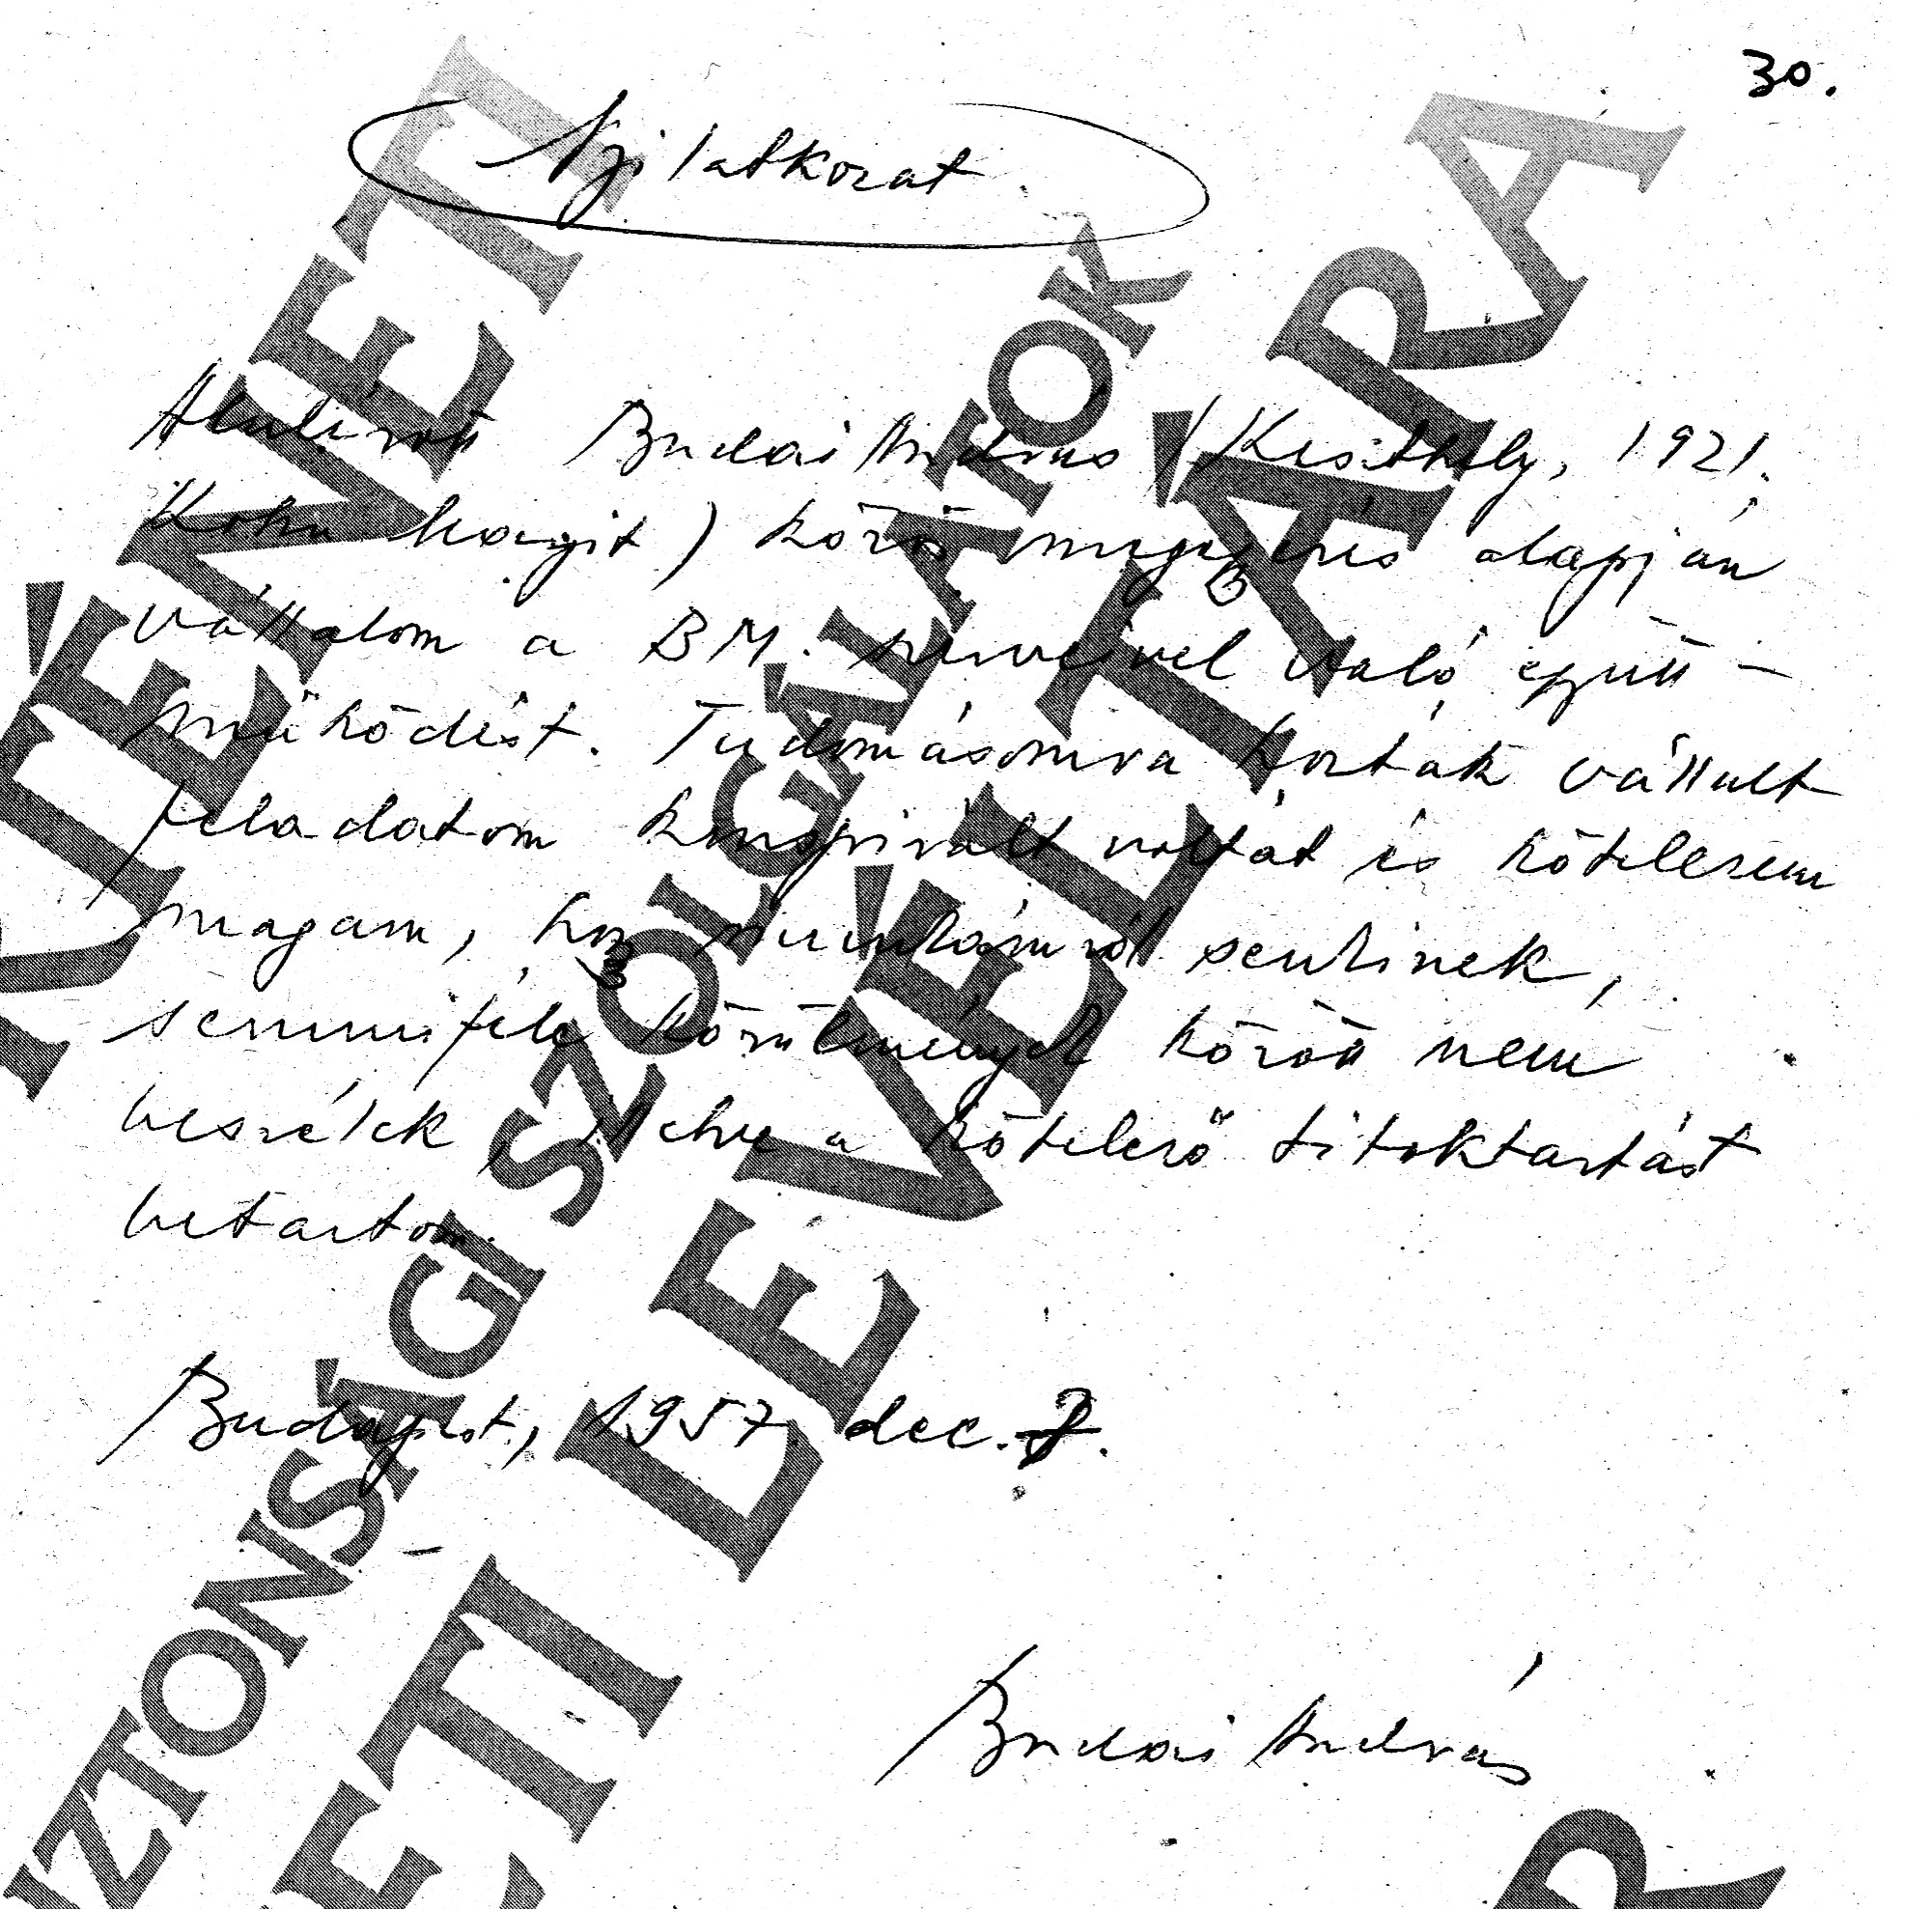 30.
Nyilatkozat.
Alulírott Budai András (Keszthely, 1921.
Kohn Margit) közös megegyezés alapján
vállalom a BM. szerveivel való együtt-
működést. Tudomásomra hozták vállalt
feladatom konspirált voltát és kötelezem
magam, hogy munkámról senkinek,
semmiféle körülmények között nem
beszélek, illetve a kötelező titoktartást
betartom.
Budapest, 1957. dec.
Budai András
TÖRTÉNETI LEVÉLTÁRA
BIZTONSÁGI SZOLGÁLATOK